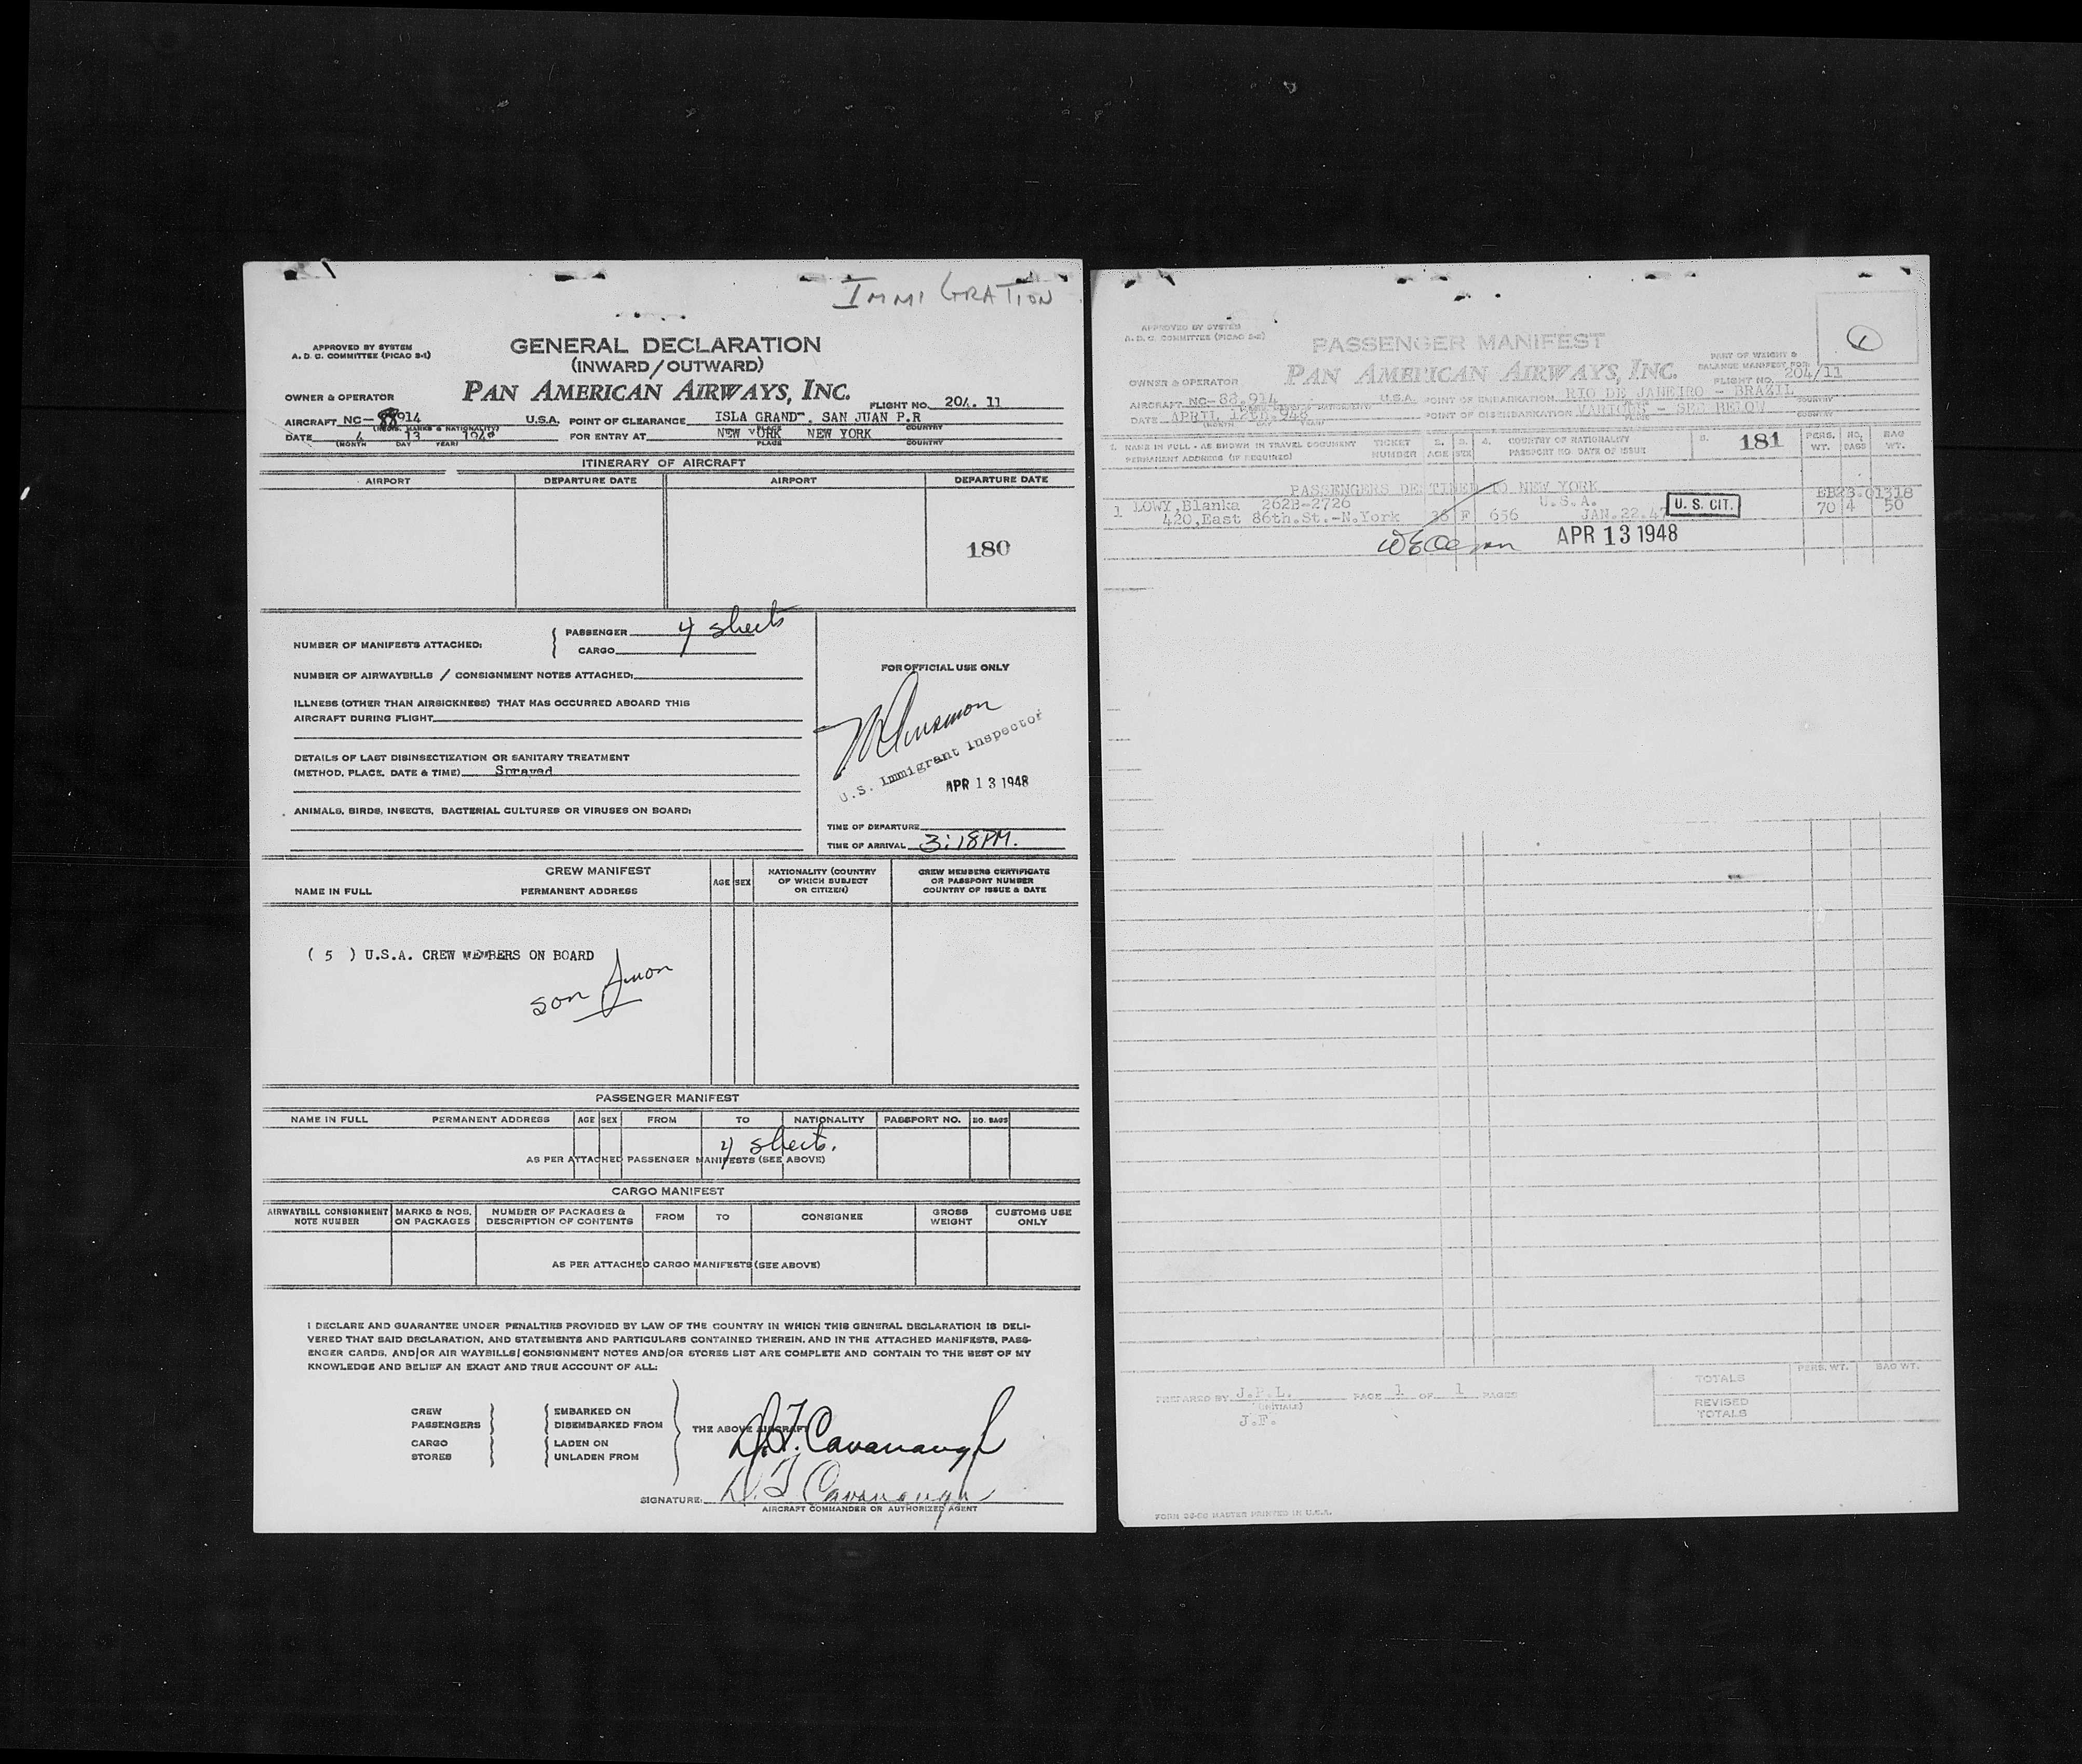 IMMIGRATION
APPROVED BY SYSTEM
A. D. C. COMMITTEE (PICAO 2-1)
GENERAL DECLARATION
(INWARD/OUTWARD)
PAN AMERICAN AIRWAYS, INC.
OWNER & OPERATOR
FLIGHT NO. 204. 11
AIRCRAFT NC-88914 U.S.A. POINT OF CLEARANCE ISLA GRAND , SAN JUAN P.R
(REGIS. MARKS & NATIONALITY) PLACE COUNTRY
DATE 4 13 1948 FOR ENTRY AT NEW YORK NEW YORK
(MONTH DAY YEAR) PLACE COUNTRY
ITINERARY OF AIRCRAFT
AIRPORT DEPARTURE DATE AIRPORT DEPARTURE DATE
180
NUMBER OF MANIFESTS ATTACHED: PASSENGER 4 sheets
CARGO
NUMBER OF AIRWAYBILLS / CONSIGNMENT NOTES ATTACHED:
ILLNESS (OTHER THAN AIRSICKNESS) THAT HAS OCCURRED ABOARD THIS
AIRCRAFT DURING FLIGHT
DETAILS OF LAST DISINSECTIZATION OR SANITARY TREATMENT
(METHOD, PLACE, DATE & TIME) Sprayed
ANIMALS, BIRDS, INSECTS, BACTERIAL CULTURES OR VIRUSES ON BOARD:
FOR OFFICIAL USE ONLY
U.S. Immigrant Inspector
APR 13 1948
TIME OF DEPARTURE
TIME OF ARRIVAL 3:18PM.
CREW MANIFEST
NAME IN FULL PERMANENT ADDRESS AGE SEX NATIONALITY (COUNTRY OF WHICH SUBJECT OR CITIZEN) CREW MEMBERS CERTIFICATE OR PASSPORT NUMBER COUNTRY OF ISSUE & DATE
( 5 ) U.S.A. CREW MEMBERS ON BOARD
PASSENGER MANIFEST
NAME IN FULL PERMANENT ADDRESS AGE SEX FROM TO NATIONALITY PASSPORT NO. NO. BAGS
4 sheets.
AS PER ATTACHED PASSENGER MANIFESTS (SEE ABOVE)
CARGO MANIFEST
AIRWAYBILL CONSIGNMENT NOTE NUMBER MARKS & NOS. ON PACKAGES NUMBER OF PACKAGES & DESCRIPTION OF CONTENTS FROM TO CONSIGNEE GROSS WEIGHT CUSTOMS USE ONLY
AS PER ATTACHED CARGO MANIFESTS (SEE ABOVE)
I DECLARE AND GUARANTEE UNDER PENALTIES PROVIDED BY LAW OF THE COUNTRY IN WHICH THIS GENERAL DECLARATION IS DELI-
VERED THAT SAID DECLARATION, AND STATEMENTS AND PARTICULARS CONTAINED THEREIN, AND IN THE ATTACHED MANIFESTS, PASS-
ENGER CARDS, AND/OR AIR WAYBILLS/ CONSIGNMENT NOTES AND/OR STORES LIST ARE COMPLETE AND CONTAIN TO THE BEST OF MY
KNOWLEDGE AND BELIEF AN EXACT AND TRUE ACCOUNT OF ALL:
CREW EMBARKED ON
PASSENGERS DISEMBARKED FROM THE ABOVE AIRCRAFT
CARGO LADEN ON
STORES UNLADEN FROM
D.T. Cavanaugh
SIGNATURE: D.T. Cavanaugh
AIRCRAFT COMMANDER OR AUTHORIZED AGENT
1
APPROVED BY SYSTEM
A. D. C. COMMITTEE (PICAO 2-2)
PASSENGER MANIFEST
PAN AMERICAN AIRWAYS, INC.
PART OF WEIGHT &
BALANCE MANIFEST FOR
FLIGHT NO. 204/11
OWNER & OPERATOR
AIRCRAFT NC-88,914 U.S.A. POINT OF EMBARKATION RIO DE JANEIRO - BRAZIL
DATE APRIL 12th.948 POINT OF DISEMBARKATION VARIOUS - SEE BELOW
(MONTH DAY YEAR) PLACE COUNTRY
1. NAME IN FULL - AS SHOWN IN TRAVEL DOCUMENT PERMANENT ADDRESS (IF REQUIRED) TICKET NUMBER 2. AGE 3. SEX 4. COUNTRY OF NATIONALITY PASSPORT NO. DATE OF ISSUE 5. 181 PERS. WT. NO. PASS BAG WT.
PASSENGERS DESTINED TO NEW YORK
1 LOWY,Blanka 262B-2726 U.S.A. EB23.01318
420,East 86th.St.-N.York 36 F 656 JAN.22.47 U. S. CIT. 70 4 50
APR 13 1948
TOTALS PERS. WT. BAG WT.
REVISED TOTALS
PREPARED BY J.P.L. PAGE 1 OF 1 PAGES
(INITIALS)
J.F.
FORM 96-06 MASTER PRINTED IN U.S.A.